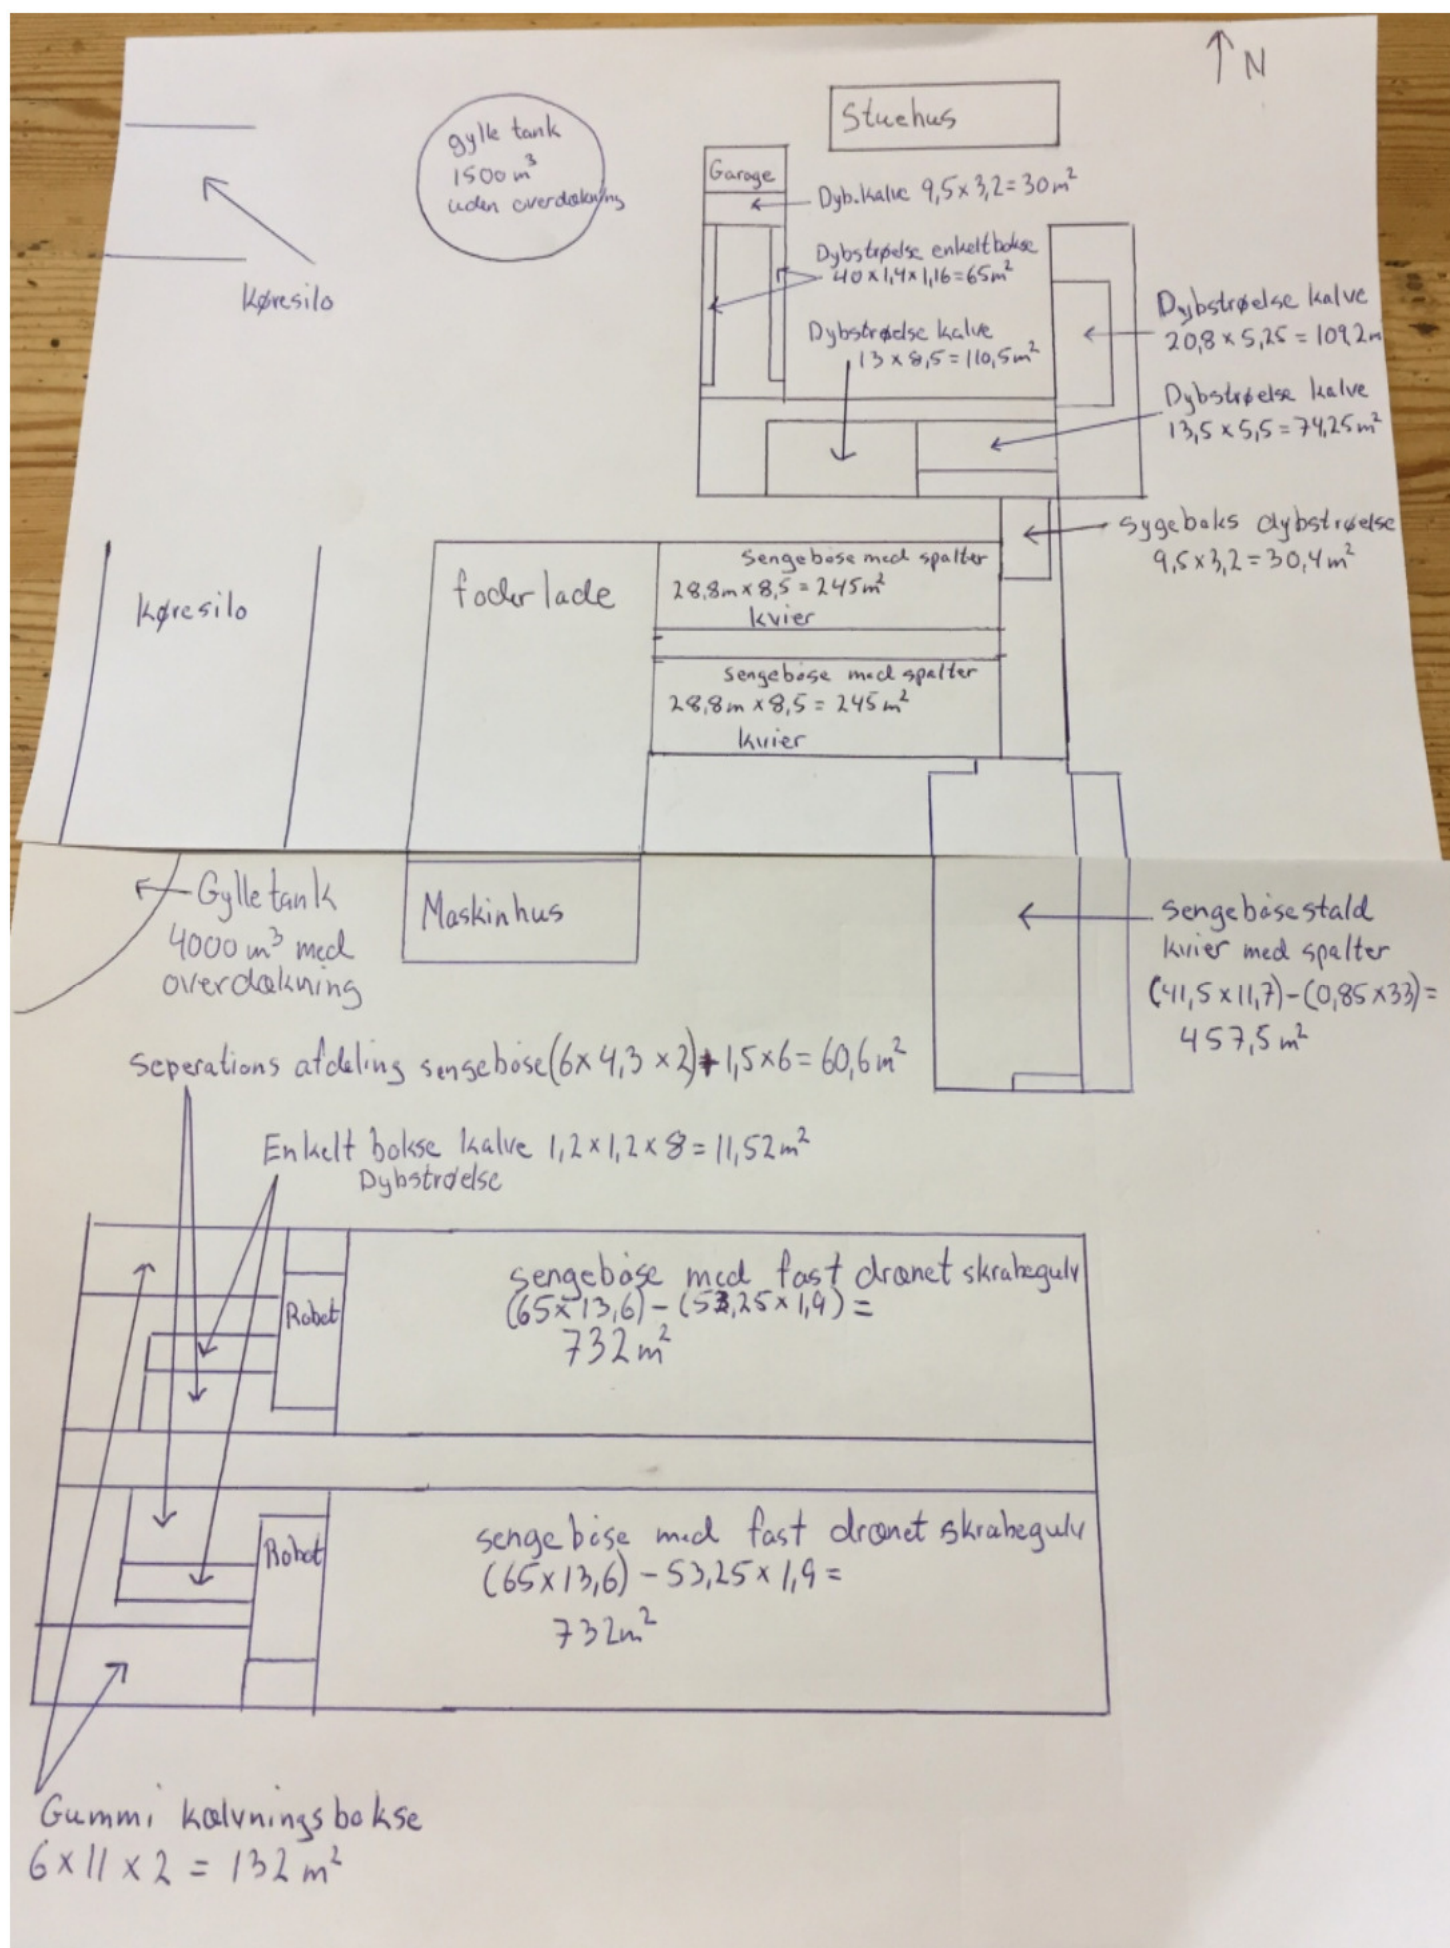 N
Stuehus
gylle tank
1500 m³
uden overdækning
Garage
Dyb. kalve 9,5 x 3,2 = 30 m²
Dybstrøelse enkeltbokse
40 x 1,4 x 1,16 = 65 m²
Køresilo
Dybstrøelse kalve
13 x 8,5 = 110,5 m²
Dybstrøelse kalve
20,8 x 5,25 = 109,2 m
Dybstrøelse kalve
13,5 x 5,5 = 74,25 m²
Sygeboks dybstrøelse
9,5 x 3,2 = 30,4 m²
Køresilo
foderlade
Sengebåse med spalter
28,8 m x 8,5 = 245 m²
kvier
Sengebåse med spalter
28,8 m x 8,5 = 245 m²
kvier
Gylletank
4000 m³ med
overdækning
Maskinhus
Sengebåsestald
kvier med spalter
(41,5 x 11,7) - (0,85 x 33) =
457,5 m²
Seperations afdeling sengebåse (6 x 4,3 x 2) + 1,5 x 6 = 60,6 m²
Enkelt bokse kalve 1,2 x 1,2 x 8 = 11,52 m²
Dybstrøelse
Robot
Sengebåse med fast drænet skrabegulv
(65 x 13,6) - (53,25 x 1,9) =
732 m²
Robot
sengebåse med fast drænet skrabegulv
(65 x 13,6) - 53,25 x 1,9 =
732 m²
Gummi kælvningsbokse
6 x 11 x 2 = 132 m²